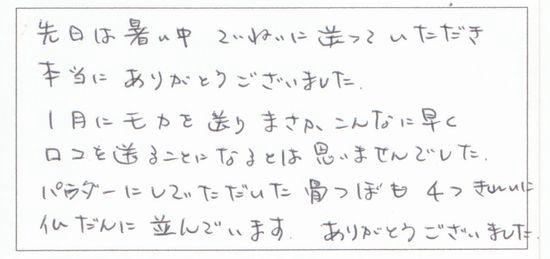 先日は暑い中 ていねいに送っていただき
本当にありがとうございました.
1月にモカを送り まさか、こんなに早く
ロコを送ることになるとは思いませんでした.
パウダーにしていただいた骨つぼも 4つきれいに
仏だんに並んでいます. ありがとうございました.